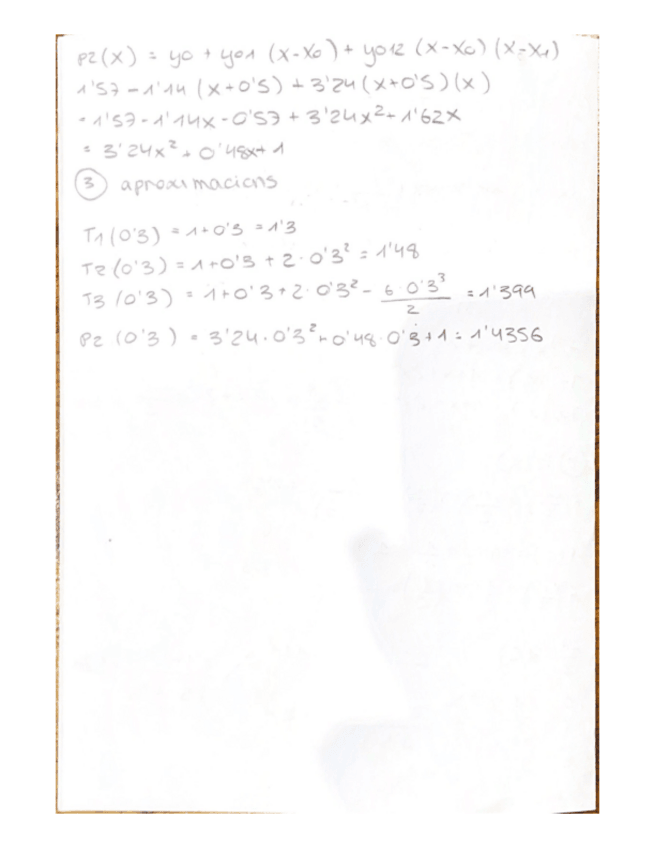 P2(x) = y0 + y01 (x-x0) + y012 (x-x0) (x-x1)
1'57 - 1'14 (x+0'5) + 3'24 (x+0'5) (x)
= 1'57 - 1'14x - 0'57 + 3'24x² + 1'62x
= 3'24x² + 0'48x + 1
③ aproximacions
T1 (0'3) = 1+0'3 = 1'3
T2 (0'3) = 1+0'3 + 2·0'3² = 1'48
T3 (0'3) = 1+0'3+2·0'3² - 6·0'3³/2 = 1'399
P2 (0'3) = 3'24·0'3² + 0'48·0'3+1 = 1'4356